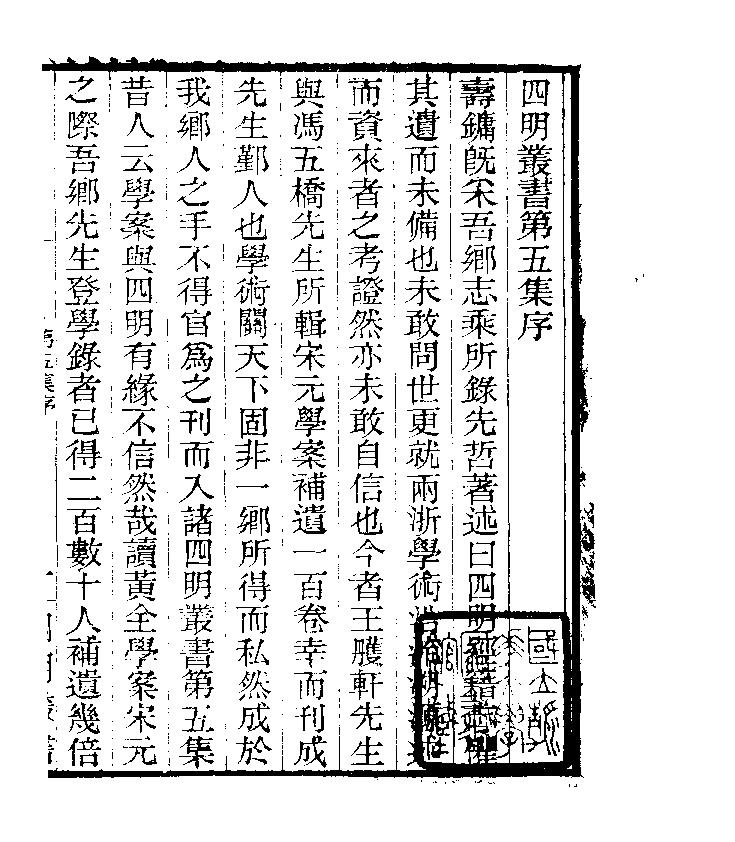 四明叢書第五集序
壽鏞既采吾鄉志乘所錄先哲著述曰四明經籍志懼
其遺而未備也未敢問世更就兩浙學術
而資來者之考證然亦未敢自信也今者王艧軒先生
與馮五橋先生所輯宋元學案補遺一百卷幸而刊成
先生鄞人也學術關天下固非一鄉所得而私然成於
我鄉人之手不得官爲之刊而入諸四明叢書第五集
昔人云學案與四明有緣不信然哉讀黃全學案宋元
之際吾鄉先生登學錄者已得二百數十人補遺幾倍
第五集序